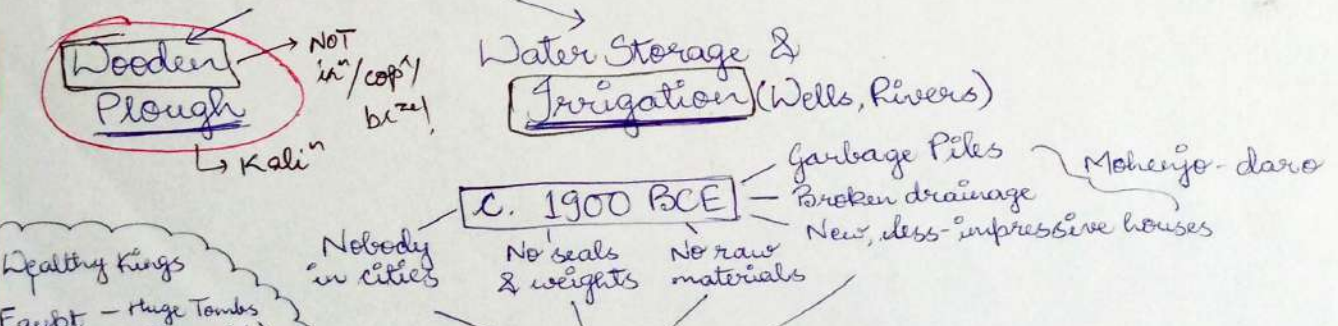 Wooden
Plough
→ NOT
irⁿ/copʳ/
brᶻᵉ!
↳ Kaliⁿ
Water Storage &
Irrigation (Wells, Rivers)
c. 1900 BCE
Garbage Piles
Broken drainage
New, less-impressive houses
Mohenjo-daro
Nobody
in cities
No seals
& weights
No raw
materials
Wealthy Kings
Egypt - Huge Tombs